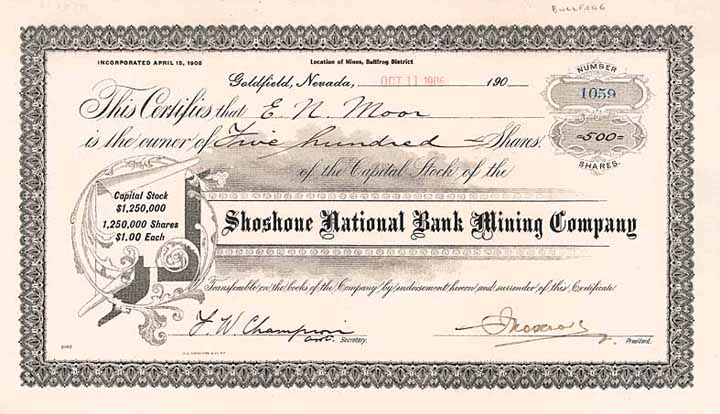 BULLFROG
INCORPORATED APRIL 15, 1905
Location of Mines, Bullfrog District
Goldfield, Nevada, OCT 11 1906 190
NUMBER
1059
This Certifies that E. N. Moor
is the owner of Five hundred Shares
-500-
SHARES.
of the Capital Stock of the
Capital Stock
$1,250,000
1,250,000 Shares
$1.00 Each
Shoshone National Bank Mining Company
Transferable on the books of the Company by indorsement hereon and surrender of this Certificate
F. W. Champion
Secretary.
President.